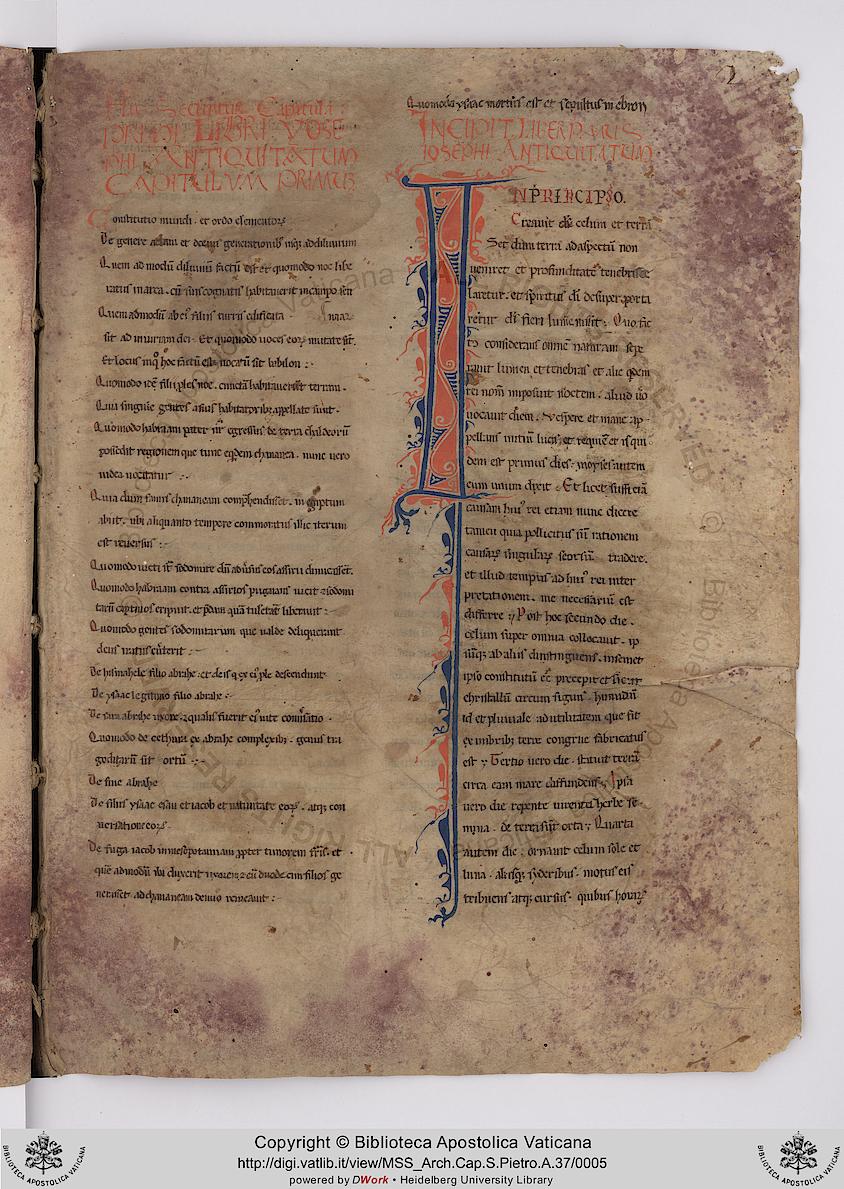 2
Hic Secuntur Capitula
PRIMI LIBRI YOSE
PHI ANTIQUITATUM
CAPITULVM PRIMUM
Constitutio mundi . et ordo elementorꝝ
De genere adam et decem generationibꝰ usqꝫ ad diluuium
Quem ad modū diluuiū factū est et quomodo noe libe
ratus in arca . cū suis cognatis habitauerit in campo sen
Quemadmodū ab eiꝰ filiis turris edificata
sit ad iniuriam dei . Et quomodo uoces eorꝝ mutate sīt .
Et locus in q̊ hoc factū est uocatū sit babilon :
Quomodo filii noe . cunctā habitauerint terram .
Quia singule gentes a suis habitatoribꝫ appellate sunt .
Quomodo habraam pater nr̄ egressus de terra chaldeorū
possedit regionem que tunc chananea . nunc uero
iudea uocitatur
Quia dum famis chananeam comp̄hendisset . in egyptum
abiit . ubi aliquanto tempore commoratus illic iterum
est reuersus :
Quomodo uicti st̄ sodomite
Quomodo habraam contra assirios pugnans uicit sodomi
tarū captiuos eripuit . et p̄dam quā tulerant liberauit :
Quomodo gentes sodomitarum que ualde deliquerant
deus iratus euerterit :
De hismahele filio abrahe et de is descendunt
De ysaac legitimo filio abrahe :
De sara abrahe uxore . qualis fuerit eiꝰ uite
Quomodo de cethura ex abrahe complexibꝫ . genus tra
goditarū sit ortū :
De fine abrahe
De filiis ysaac esau et iacob et natiuitate eorꝝ . atqꝫ con
uersatione eorꝝ .
De fuga iacob in mesopotamiam ꝓpter timorem fr̄is . et
ad modū ibi duxerit uxorem cū duodecim filios ge
nerasset . ad chananeam denuo remeauit :
Quomodo ysaac mortuus est et sepultus in ebron
INCIPIT LIBER PRIMUS
IOSEPHI ANTIQUITATUM
IN PRINCIPIO.
Creauit ds̄ celum et terrā
Set dum terra ad aspectū non
ueniret et profunditate tenebris ce
laretur . et spiritus dī desuper porta
retur ds̄ fieri lumē iussit . Quo fac
to considerans omnē naturam sepa
rauit lumen et tenebras et alie quidem
rei nom̄ imposuit noctem . aliud uō
uocauit diem . Vespere et mane ap
pellans initiū lucis et requiē et is qui
dem est primus dies . moyses autem
eum unum dixit . Et licet sufficiā
causam huiꝰ rei etiam nunc dicere
tamen quia pollicitus sū rationem
causarꝫ singularꝫ seorsū tradere .
et illud tempus ad huiꝰ rei inter
pretationem . me necessariū est
differre . Post hoc secundo die .
celum super omnia collocauit . ip
sūqꝫ ab aliis distinguens . insemet
ipso constitutū eē precepit et
christallū circum figens . humidū
id et pluuiale ad utilitatem que fit
ex imbribꝫ terre congrue fabricatus
est . Tertio uero die . statuit terrā
circa eam mare diffundens . Ipsa
uero die repente uirentes herbe se
mina . de terra sunt orta . Quarta
autem die . ornauit celum sole et
luna . aliisqꝫ syderibus . motus eis
tribuens atqꝫ cursus . quibus horarꝫ
Copyright © Biblioteca Apostolica Vaticana
http://digi.vatlib.it/view/MSS_Arch.Cap.S.Pietro.A.37/0005
powered by DWork • Heidelberg University Library
BIBLIOTECA APOSTOLICA VATICANA
BIBLIOTECA APOSTOLICA VATICANA